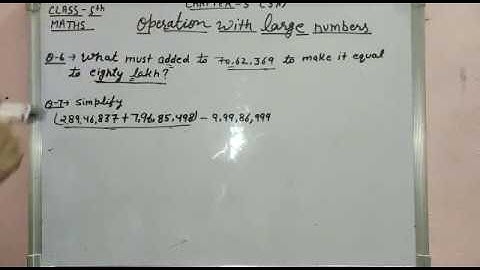 CLASS - 5th
MATHS
Operation with large numbers
Q-6 → What must added to 70,62,369 to make it equal
to eighty lakh?
Q-7 → Simplify
(289,46,837 + 7,96,85,498) - 9,99,86,999